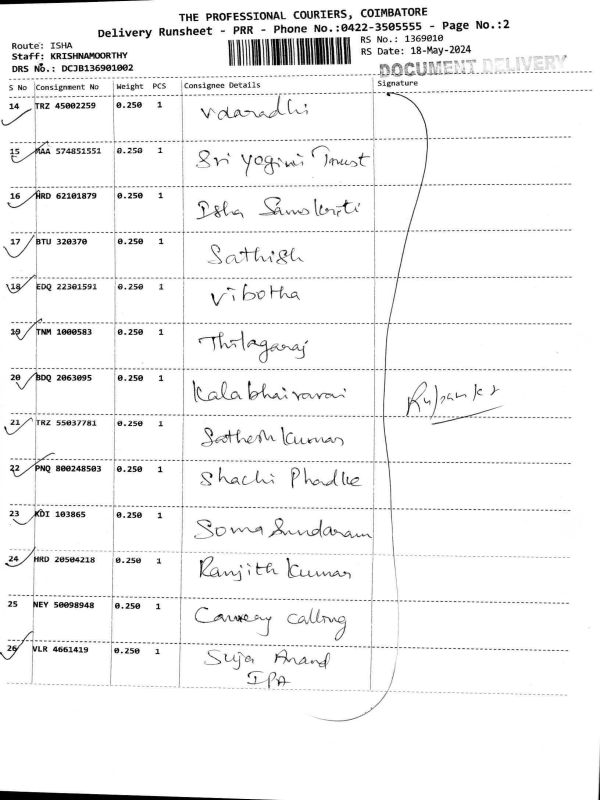 THE PROFESSIONAL COURIERS, COIMBATORE
Delivery Runsheet - PRR - Phone No.:0422-3505555 - Page No.:2
Route: ISHA
Staff: KRISHNAMOORTHY
DRS No.: DCJB136901002
RS No.: 1369010
RS Date: 18-May-2024
DOCUMENT DELIVERY
S No Consignment No Weight PCS Consignee Details Signature
14 TRZ 45002259 0.250 1 Vdaradhi
15 MAA 574851551 0.250 1 Sri Yogini Trust
16 HRD 62101879 0.250 1 Isha Samskriti
17 BTU 320370 0.250 1 Sathish
18 EDQ 22301591 0.250 1 Vibotha
19 TNM 1000583 0.250 1 Thilagaraj
20 BDQ 2063095 0.250 1 Kalabhairavai
21 TRZ 55037781 0.250 1 Sathesh Kumar
22 PNQ 800248503 0.250 1 Shachi Phadke
23 KDI 103865 0.250 1 Soma Sundaram
24 HRD 20504218 0.250 1 Ranjith Kumar
25 NEY 50098948 0.250 1 calling
26 VLR 4661419 0.250 1 Suja Anand
IPA